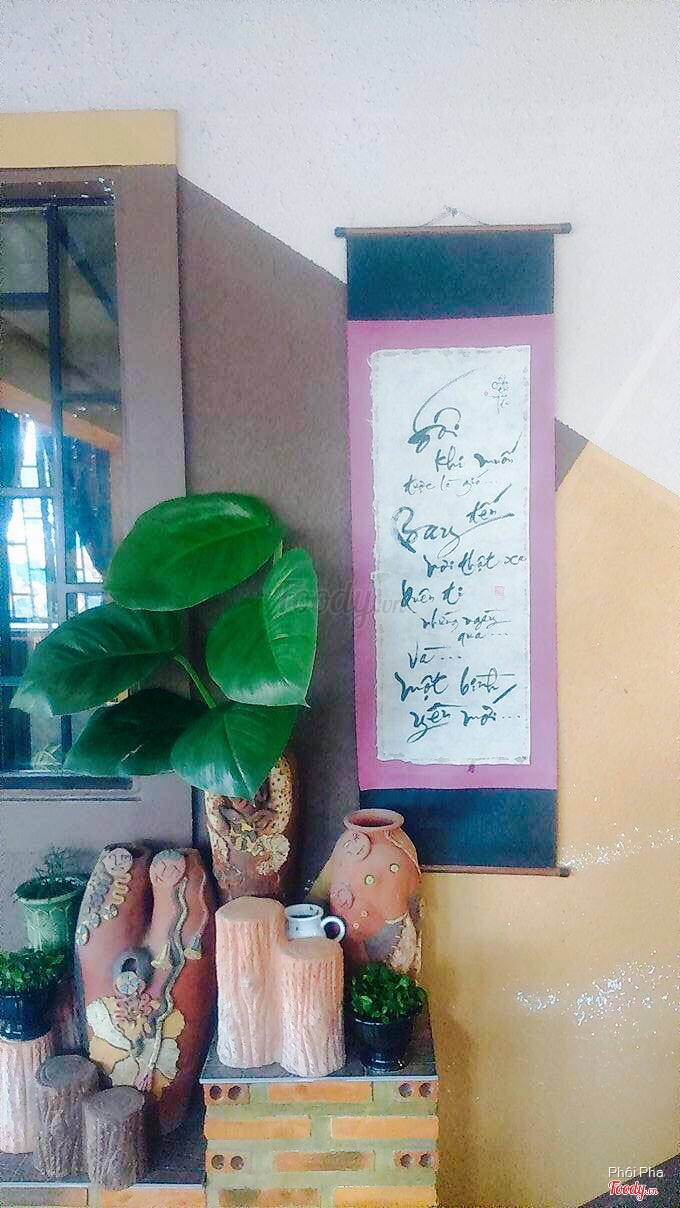 Đôi
khi muốn
được là gió...
Bay đến
nơi thật xa
Quên đi
những ngày
qua...
Và...
một bình
yên mới...
Foody.vn
Phôi Pha
Foody.vn